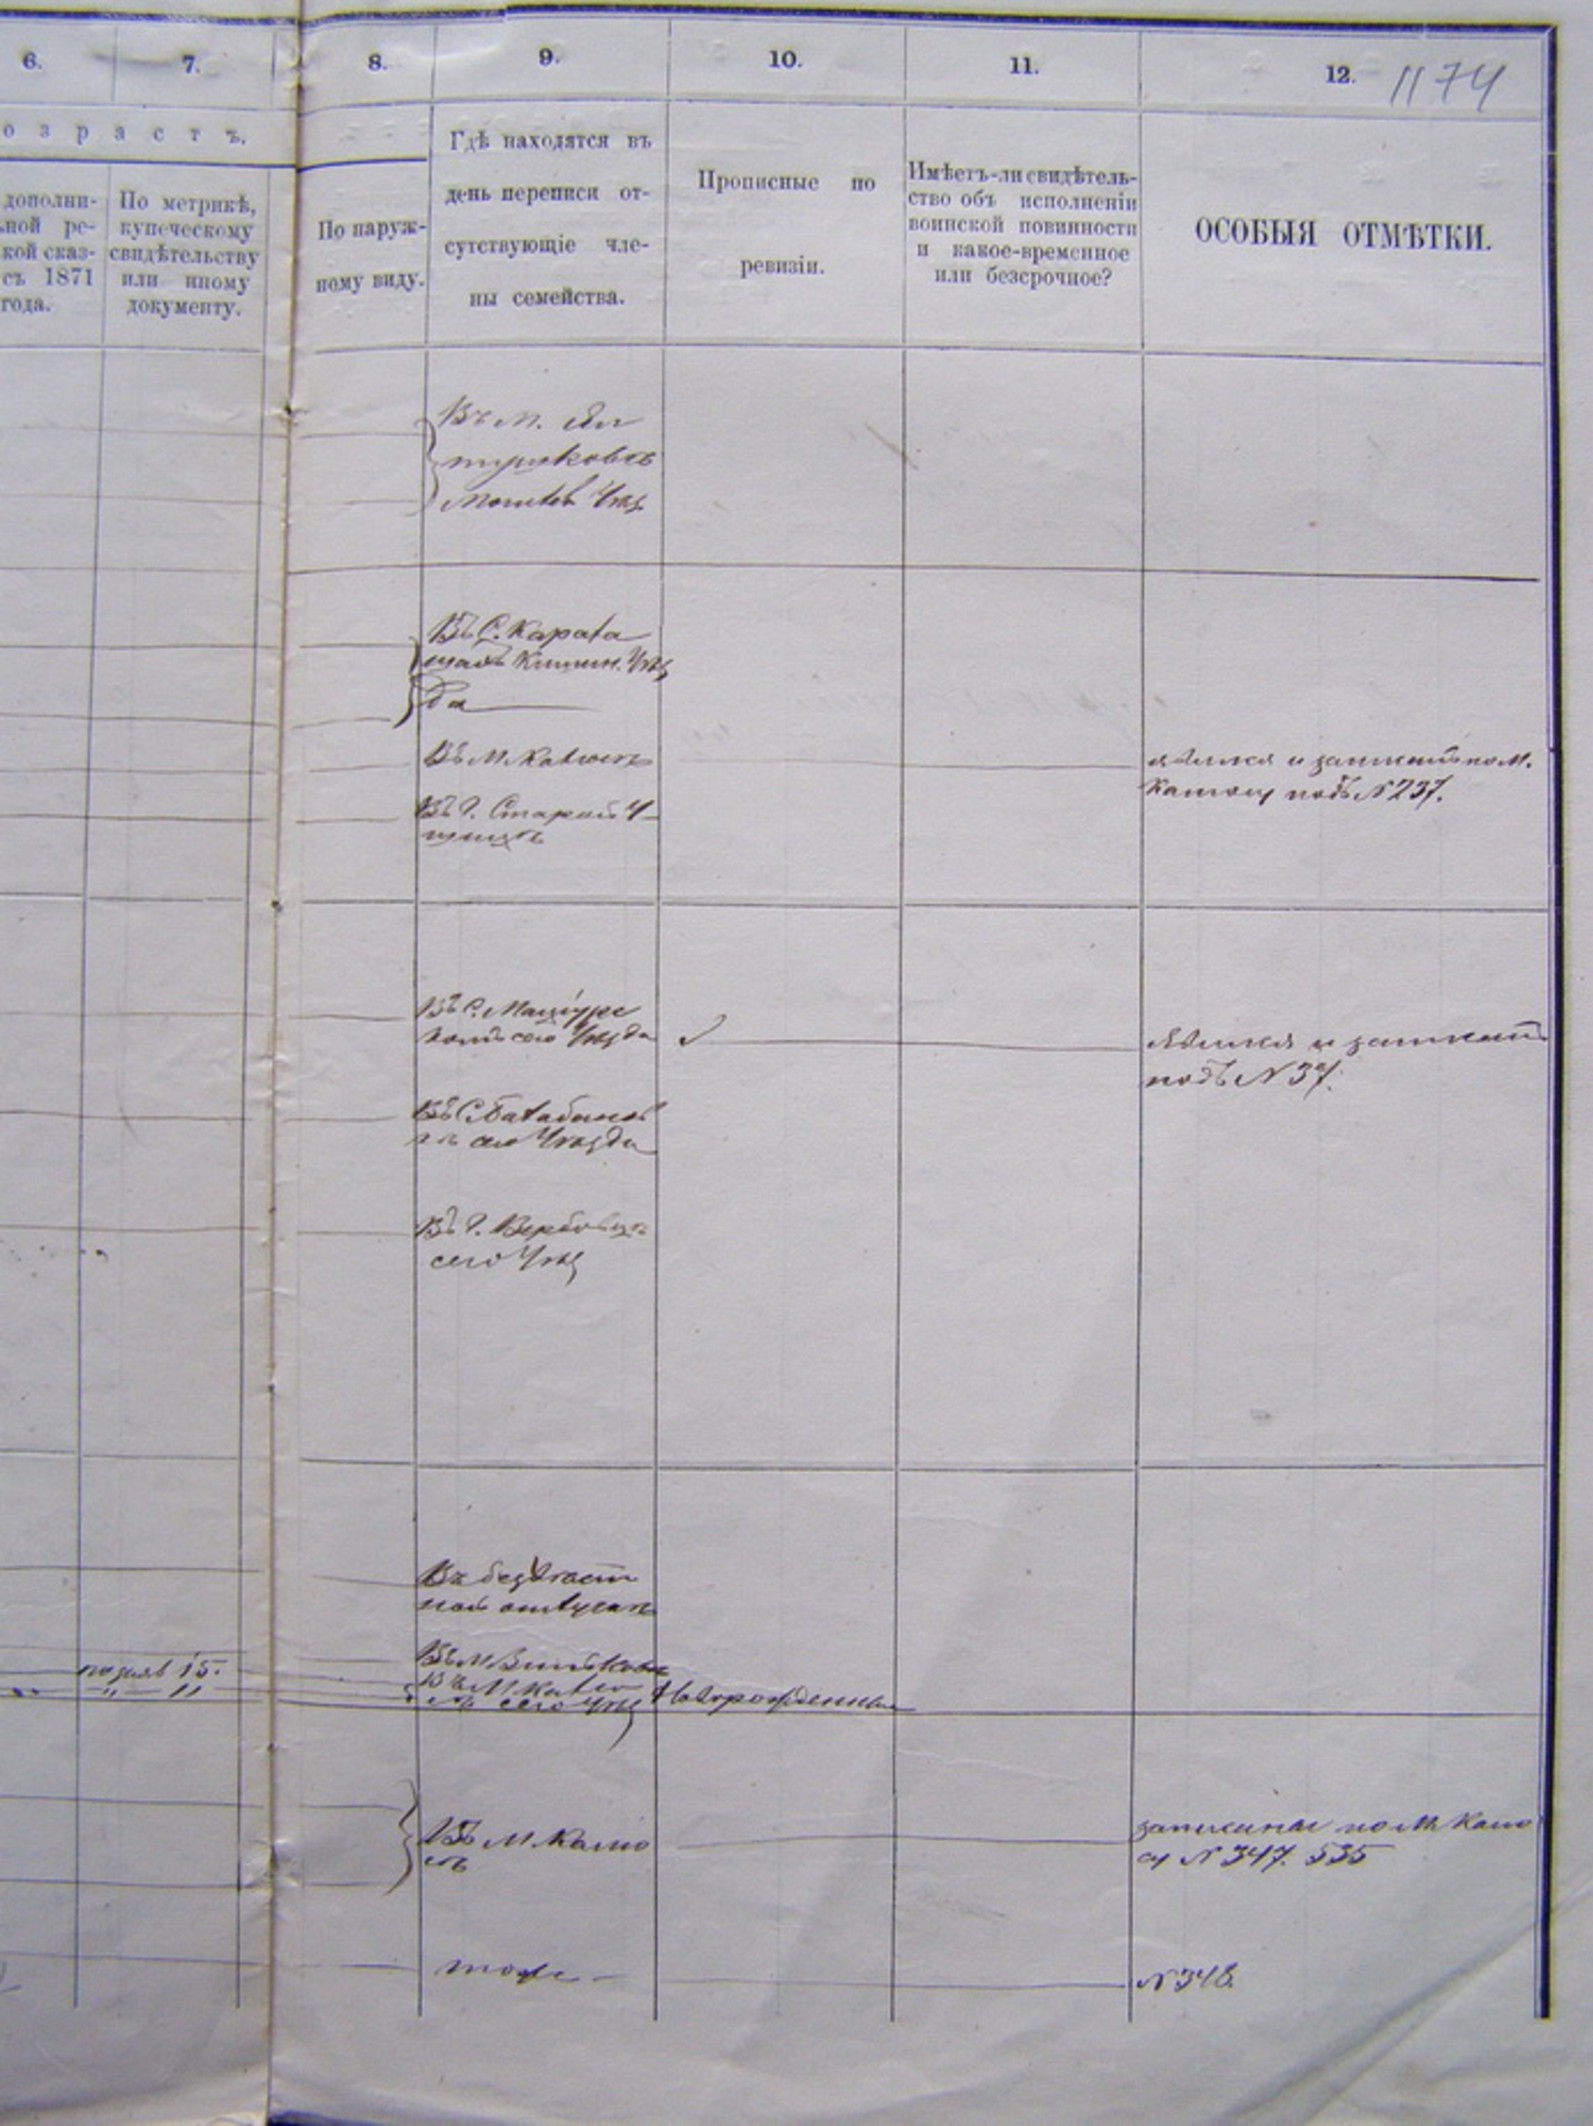 6. 7. 8. 9. 10. 11. 12. 1174
озрастъ.
дополни-
ной ре-
кой сказ-
съ 1871
года.
По метрикѣ,
купеческому
свидѣтельству
или иному
документу.
По наруж-
ному виду.
Гдѣ находятся въ
день переписи от-
сутствующіе чле-
ны семейства.
Прописные по
ревизіи.
Имѣетъ-ли свидѣтель-
ство объ исполненіи
воинской повинности
и какое-временное
или безсрочное?
ОСОБЫЯ ОТМѢТКИ.
Въ м. Ял
тушковѣ
Могилев. Уѣз.
Въ С. Карала
шахъ Кишин. Уѣз
да
Въ М. Калюсъ
явился и записанъ по М.
Калюсу подъ N 237.
Въ Г. Старой У-
шицѣ
Въ С.
сего Уѣзда
явился и записанъ
подъ N 37.
Въ С. Балабанов
кѣ сего Уѣзда
Въ Г. Вербовцѣ
сего Уѣз
Въ безвѣст
ной отлучкѣ
Въ М. Виньковцѣ
показыв 15.
" — 11
Въ М. Калю
сѣ сего Уѣз
Новорожденный
Въ М. Калю
сѣ
записаны по М. Калю
су N 347. 535
тоже —
N 348.